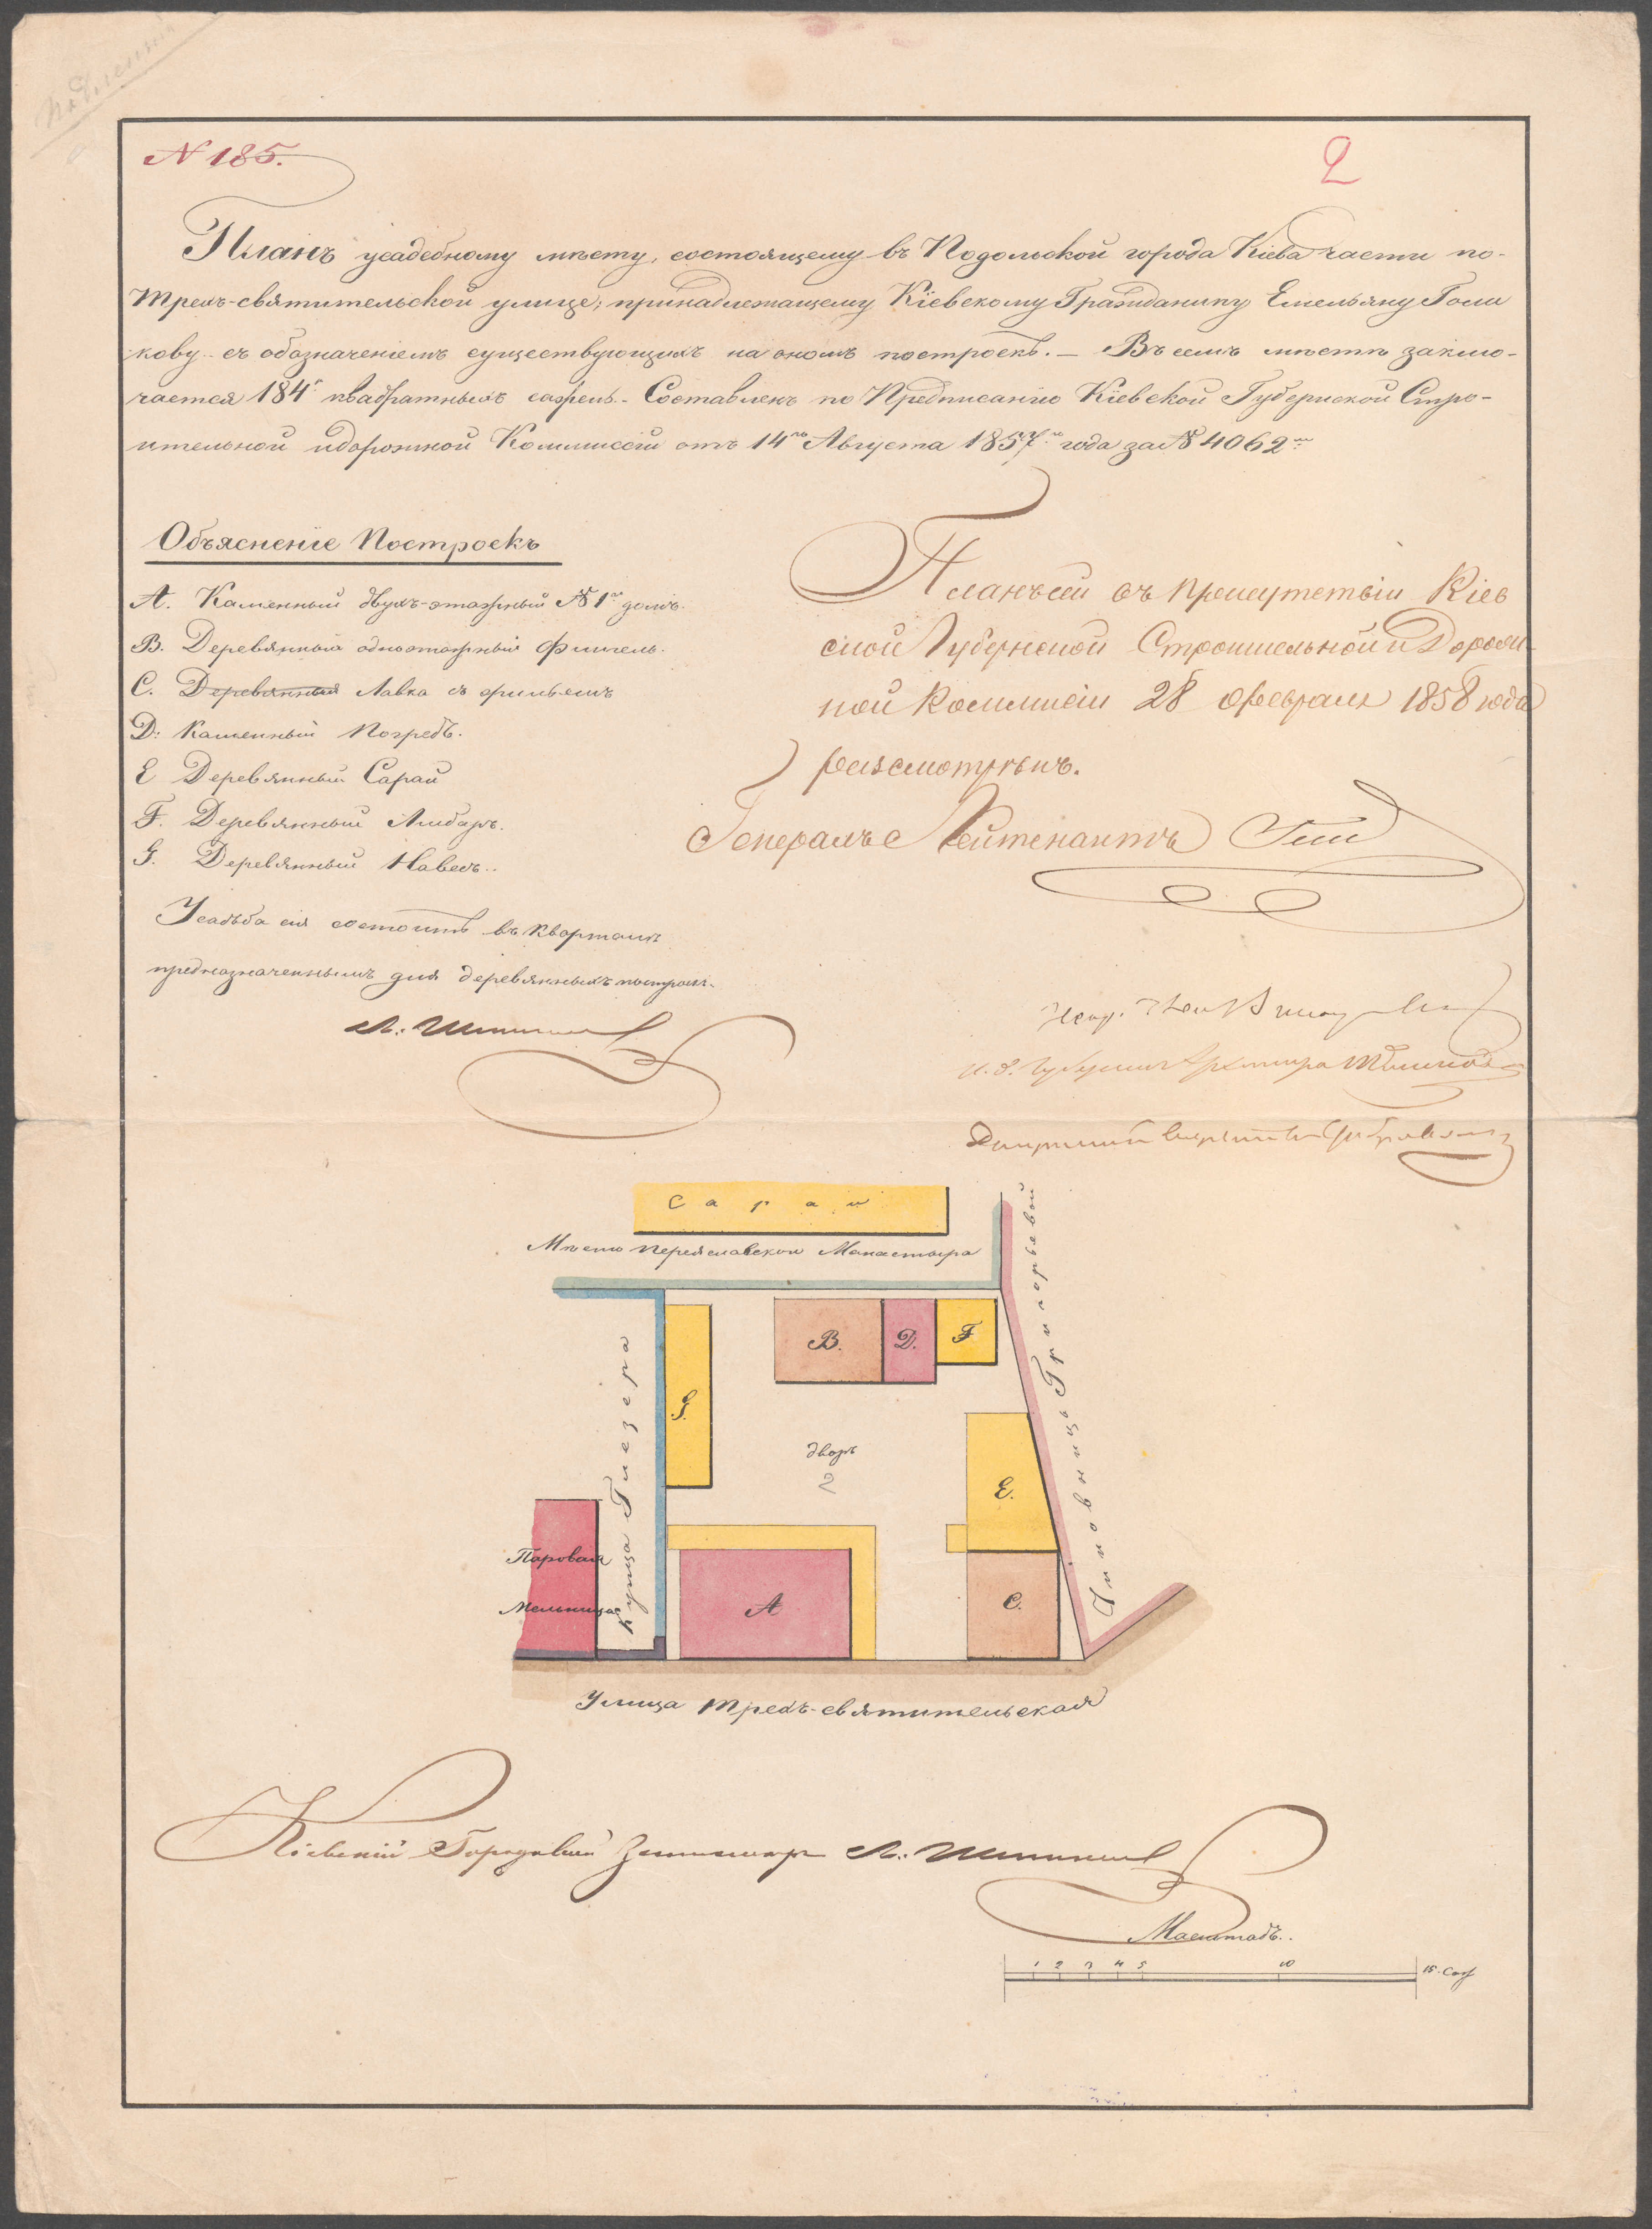 N 185.
2
Планъ усадебному мѣсту, состоящему въ Подольской города Кіева части по-
Трехъ-святительской улице, принадлежащему Кіевскому Гражданину Емельяну Голи
кову съ обозначеніемъ существующихъ на ономъ построекъ. — Въ семъ мѣстѣ заклю-
чается 184 квадратныхъ сажень. Составленъ по Предписанію Кіевской Губернской Стро-
ительной и дорожной Коммиссіи отъ 14го Августа 1857го года за № 4062мъ
Объясненіе Построекъ
А. Каменный двухъ-этажный № 1й домъ.
В. Деревянный одноэтажный флигель.
С. Деревянная Лавка съ жильемъ
D: Каменный Погребъ.
Е Деревянный Сарай
F. Деревянный Амбаръ.
G. Деревянный Навесъ.
Усадьба сія состоитъ въ кварталѣ
предназначенномъ для деревянныхъ построекъ.
Планъ сей въ присутствіи Кіев
ской Губернской Строительной и Дорож
ной Коммисіи 28 февраля 1858 года
разсмотрѣнъ.
Генералъ Лейтенантъ
Сарай
Мѣсто Переяславскои Манастыра
купца Глезера
Чиновницы Григорьевой
B.
D.
F
G.
дворъ
2
E.
Паровая
Мельница
A
C.
Улица трехъ-святительская
Кіевскій Городовый Землемѣръ
Масштабъ.
1 2 3 4 5 10 15. Саж